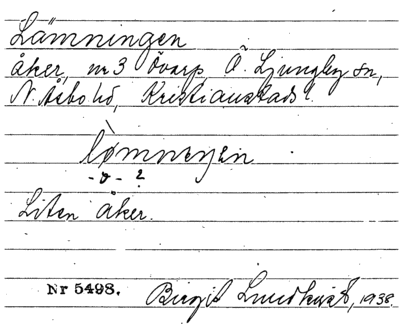 Lämningen
åker, nr 3 Övarp, Ö. Ljungby sn,
N. Åsbo hd, Kristianstads l.
lømneɲen
- ʊ - ?
Liten åker.
Nr 5498. Birgit Lundkvist, 1938.